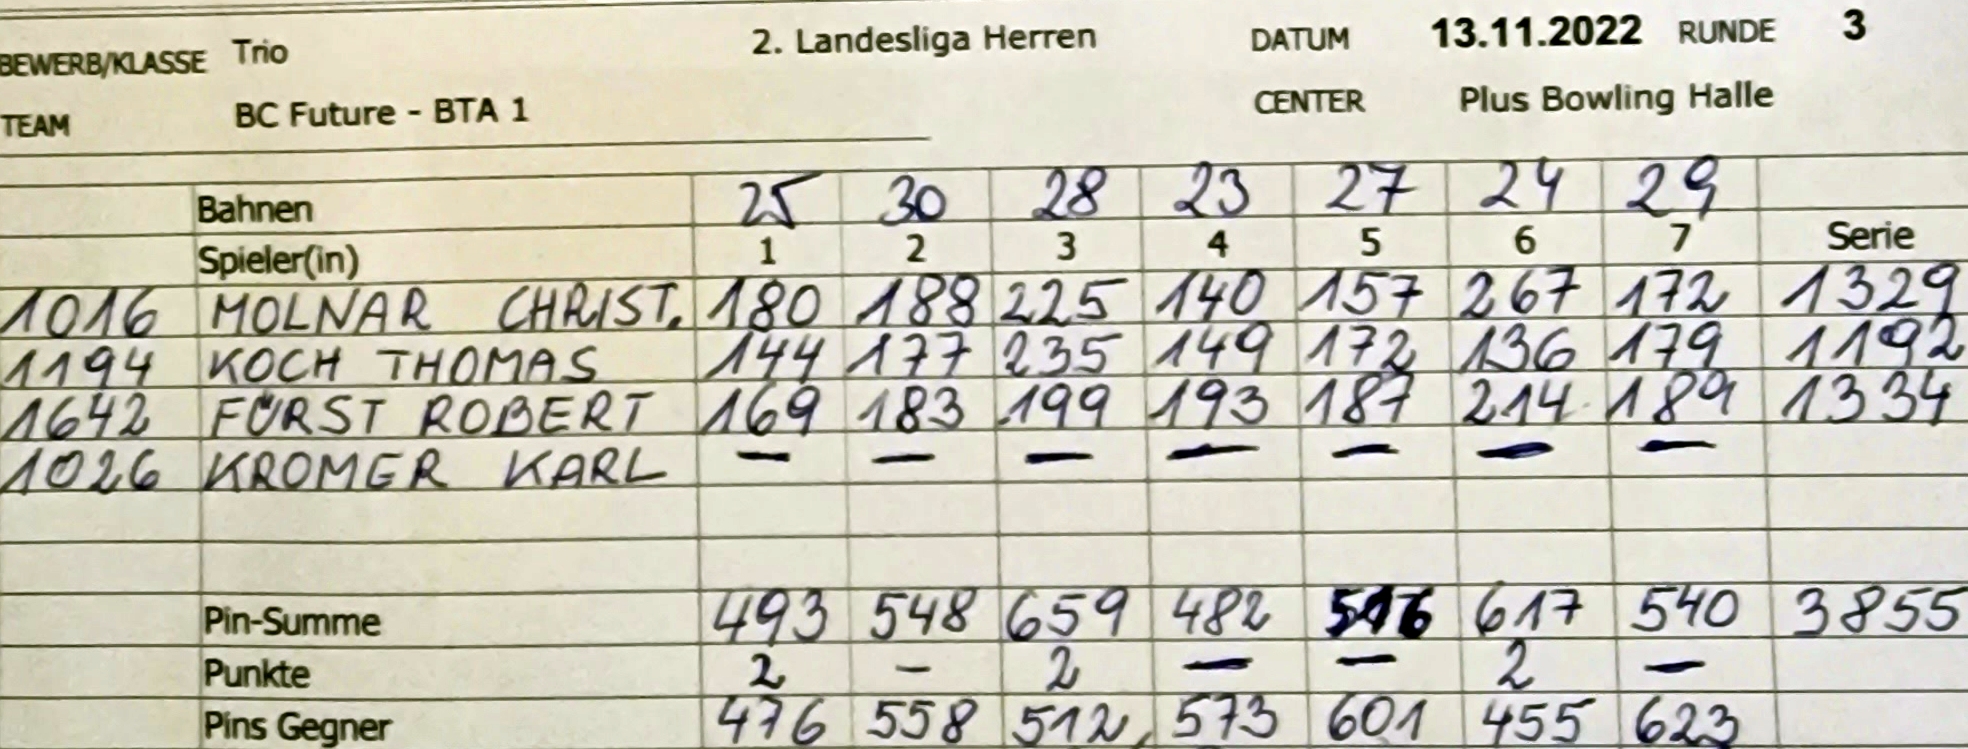 BEWERB/KLASSE Trio 2. Landesliga Herren DATUM 13.11.2022 RUNDE 3
TEAM BC Future - BTA 1 CENTER Plus Bowling Halle
Bahnen 25 30 28 23 27 24 29
Spieler(in) 1 2 3 4 5 6 7 Serie
1016 MOLNAR CHRIST. 180 188 225 140 157 267 172 1329
1194 KOCH THOMAS 144 177 235 149 172 136 179 1192
1642 FÜRST ROBERT 169 183 199 193 187 214 189 1334
1026 KROMER KARL – – – – – – –
Pin-Summe 493 548 659 482 516 617 540 3855
Punkte 2 – 2 – – 2 –
Pins Gegner 476 558 512 573 601 455 623